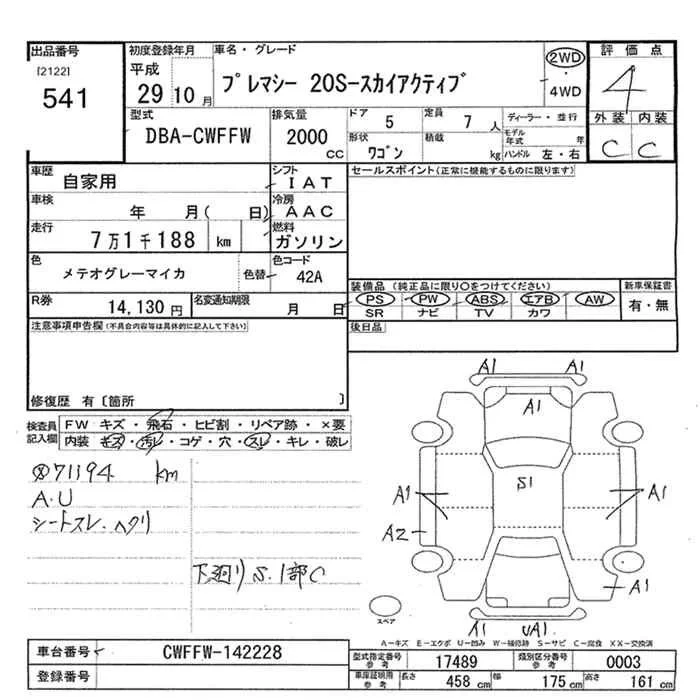 出品番号 初度登録年月 車名・グレード 2WD 評価点
[2122] 平成 プレマシー 20S-スカイアクティブ ・ 4
541 29 10月 4WD 外装 内装
型式 排気量 ドア 定員 ディーラー・並行 C C
DBA-CWFFW 2000 CC 5 7人 モデル年式 年
形状 積載 ハンドル 左・右
ワゴン kg
車歴 自家用 シフト IAT セールスポイント(正常に機能するものに限ります)
車検 年 月( 日) 冷房 AAC
走行 7万1千188 km 燃料 ガソリン
色 メテオグレーマイカ 色替 色コード 42A
装備品(純正品に限り○をつけてください) 新車保証書
R券 14,130円 名変通知期限 月 日 PS PW ABS エアB AW 有・無
SR ナビ TV カワ
注意事項申告欄(不具合内容等は具体的に記入して下さい) 後日品
修復歴 有〔箇所 〕
検査員記入欄 FW キズ・飛石・ヒビ割・リペア跡・×要
内装 キズ・汚レ・コゲ・穴・スレ・キレ・破レ
71194 km
A.U
シートスレ.ヘタリ
下廻りS.1部C
A1 A1
A1
S1
A1 A1
A2
A1
A1 UA1
スペア
A-キズ E-エクボ U-凹み W-補修跡 S-サビ C-腐食 XX-交換済
車台番号 CWFFW-142228 型式指定番号 参考 17489 類別区分番号 参考 0003
登録番号 車庫証明用 参考 長さ 458cm 幅 175cm 高さ 161cm